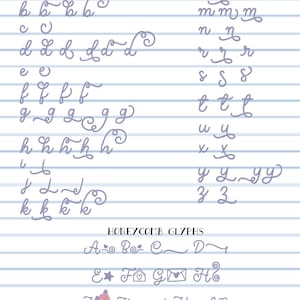 b b b b
m m m
c c
n n
d d d d d d
r r r
e e
s s s
f f f f
t t t
g g g g g g
u u
h h h h h
x x
i i
y y y y
j j j
z z
k k k k
HONEYCOMB GLYPHS
A B C D
E F G H